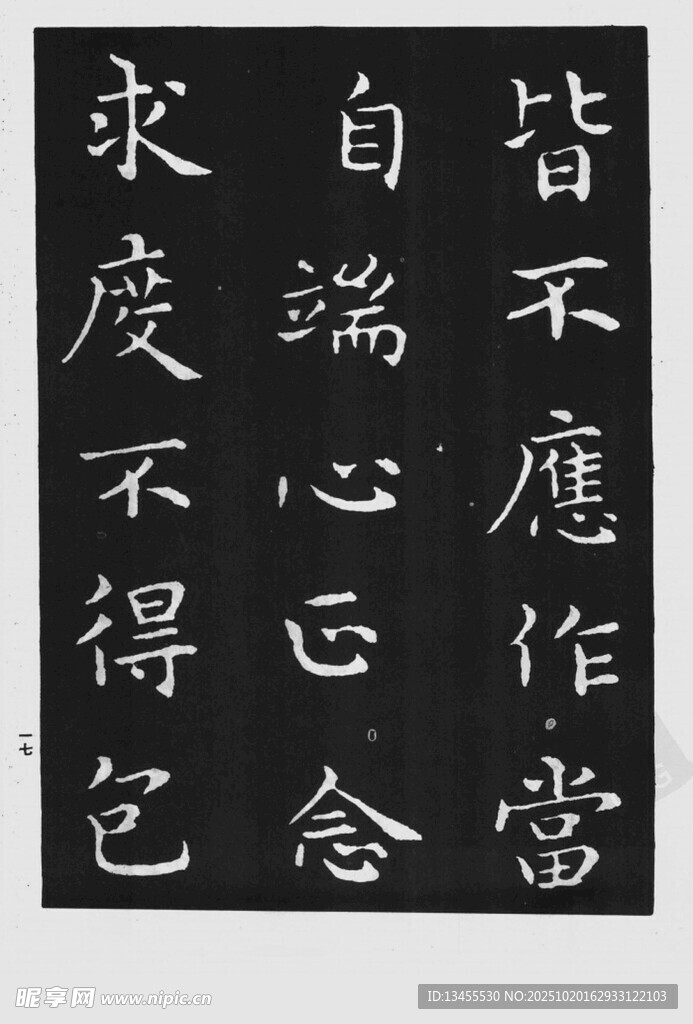 皆不應作當
自端心正念
求度不得包
一七
昵享网 www.nipic.cn
ID:13455530 NO:20251020162933122103